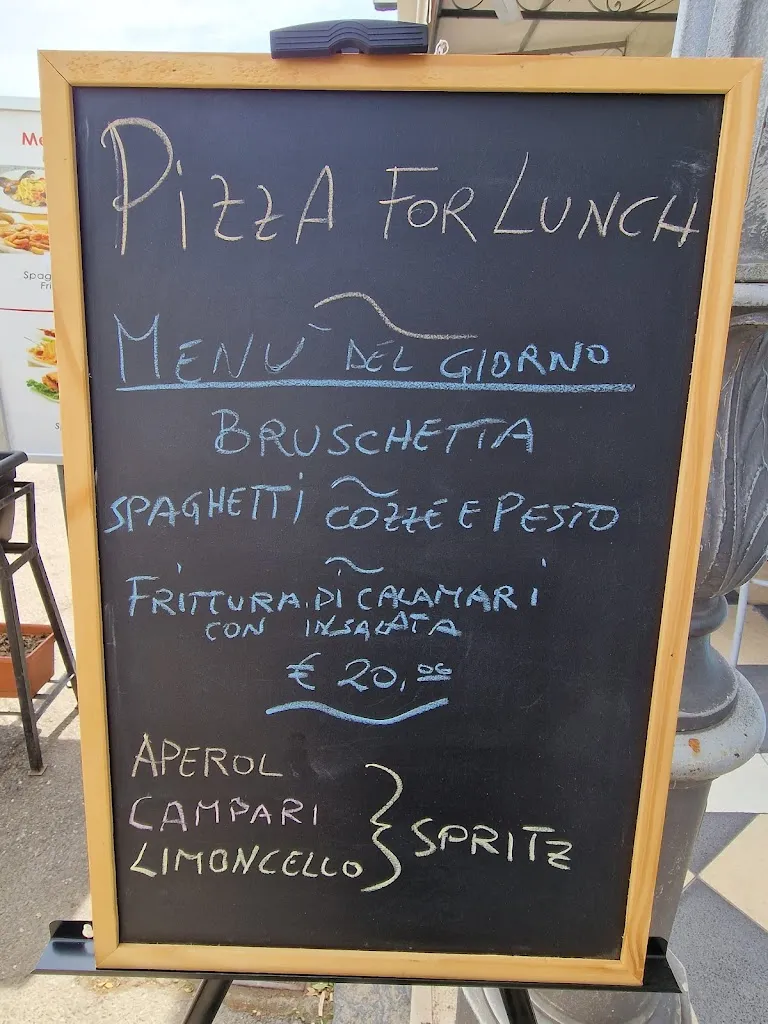 PiZZA FOR LUNCH
MENÙ DEL GIORNO
BRUSCHETTA
SPAGHETTI COZZE E PESTO
FRITTURA DI CALAMARI
CON INSALATA
€ 20,00
APEROL
CAMPARI
LIMONCELLO
SPRITZ